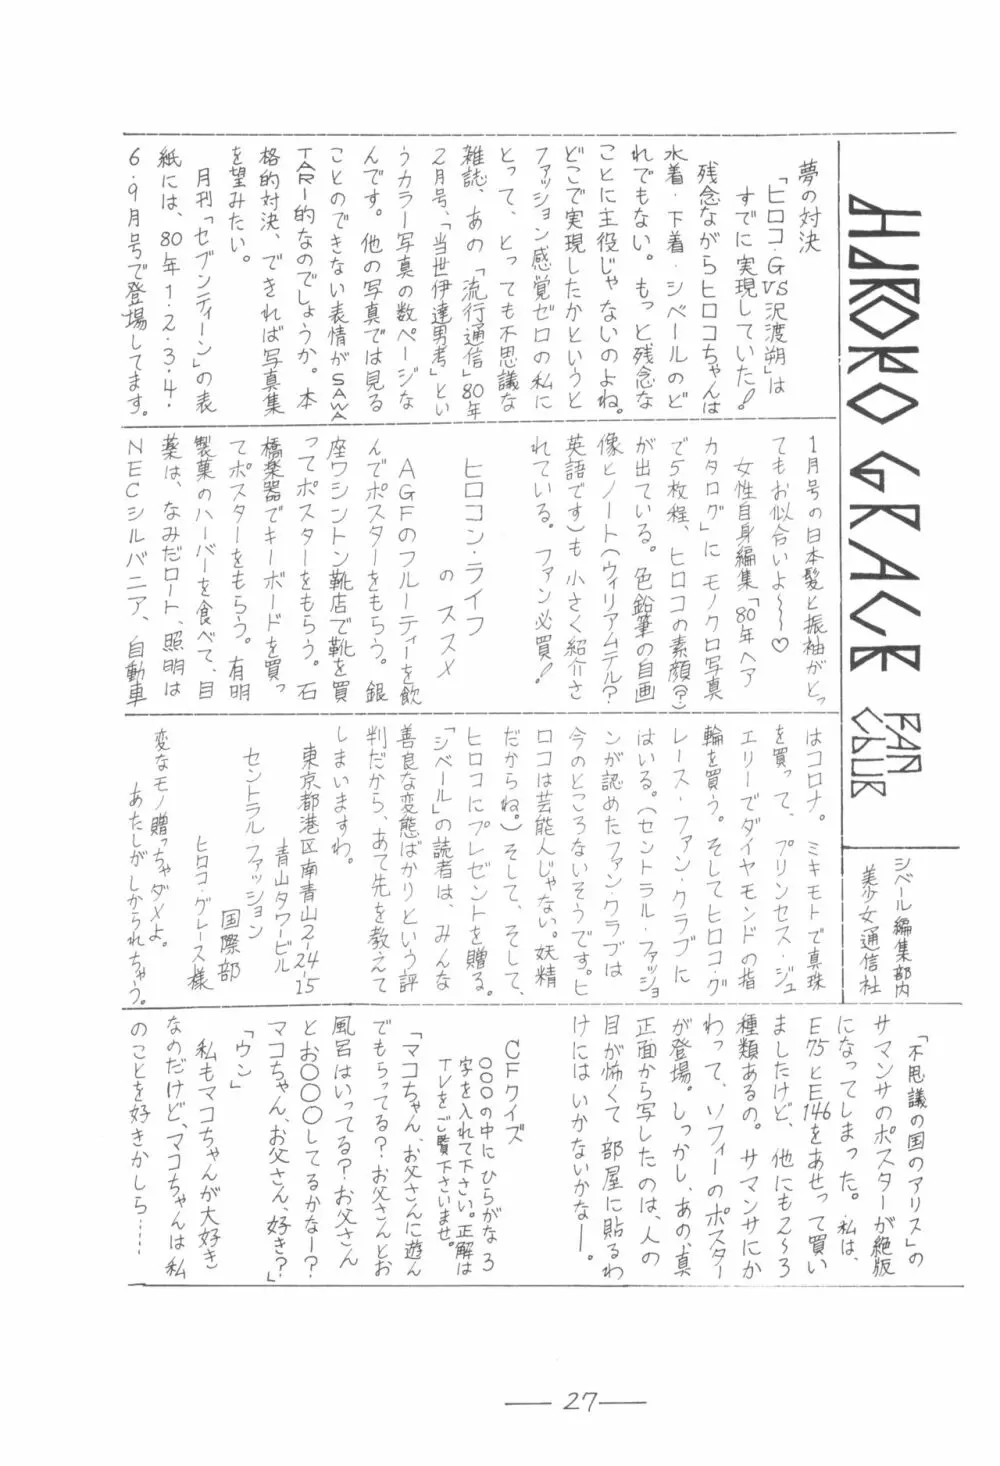 HIROKO GRACE
FAN
CLUB
シベール編集部内
美少女通信社
夢の対決
「ヒロコ・GVS沢渡朔」は
すでに実現していた!
残念ながらヒロコちゃんは
水着・下着・シベールのど
れでもない。もっと残念な
ことに主役じゃないのよね。
どこで実現したかというと
ファッション感覚ゼロの私に
とって、とっても不思議な
雑誌、あの「流行通信」80年
2月号、「当世伊達男考」とい
うカラー写真の数ページな
んです。他の写真では見る
ことのできない表情がSAWA
TARI的なのでしょうか。本
格的対決、できれば写真集
を望みたい。
月刊「セブンティーン」の表
紙には、80年1・2・3・4・
6・9月号で登場してます。
1月号の日本髪と振袖がとっ
てもお似合いよ〜〜♡
女性自身編集「80年ヘア
カタログ」にモノクロ写真
で5枚程、ヒロコの素顔(?)
が出ている。色鉛筆の自画
像とノート(ウィリアムテル?
英語です)も小さく紹介さ
れている。ファン必買!
ヒロコン・ライフ
のススメ
AGFのフルーティーを飲
んでポスターをもらう。銀
座ワシントン靴店で靴を買
ってポスターをもらう。石
橋楽器でキーボードを買っ
てポスターをもらう。有明
製菓のハーバーを食べて、目
薬は、なみだロート、照明は
NECシルバニア、自動車
はコロナ。ミキモトで真珠
を買って、プリンセス・ジュ
エリーでダイヤモンドの指
輪を買う。そしてヒロコ・グ
レース・ファン・クラブに
はいる。(セントラル・ファッショ
ンが認めたファン・クラブは
今のところないそうです。ヒ
ロコは芸能人じゃない。妖精
だからね。)そして、そして、
ヒロコにプレゼントを贈る。
「シベール」の読者は、みんな
善良な変態ばかりという評
判だから、あて先を教えて
しまいますわ。
東京都港区南青山2-24-15
青山タワービル
セントラルファッション
国際部
ヒロコ・グレース様
変なモノ贈っちゃダメよ。
あたしがしかられちゃう。
「不思議の国のアリス」の
サマンサのポスターが絶版
になってしまった。私は、
E75とE146をあせって買い
ましたけど、他にも2〜3
種類あるの。サマンサにか
わって、ソフィーのポスター
が登場。しっかし、あの、真
正面から写したのは、人の
目が怖くて部屋に貼るわ
けにはいかないかなー。
CFクイズ
○○○の中にひらがな3
字を入れて下さい。正解は
TVをご覧下さいませ。
「マコちゃん、お父さんに遊ん
でもらってる?お父さんとお
風呂はいってる?お父さん
とお○○○してるかなー?
マコちゃん、お父さん、好き?」
「ウン」
私もマコちゃんが大好き
なのだけど、マコちゃんは私
のことを好きかしら……
27